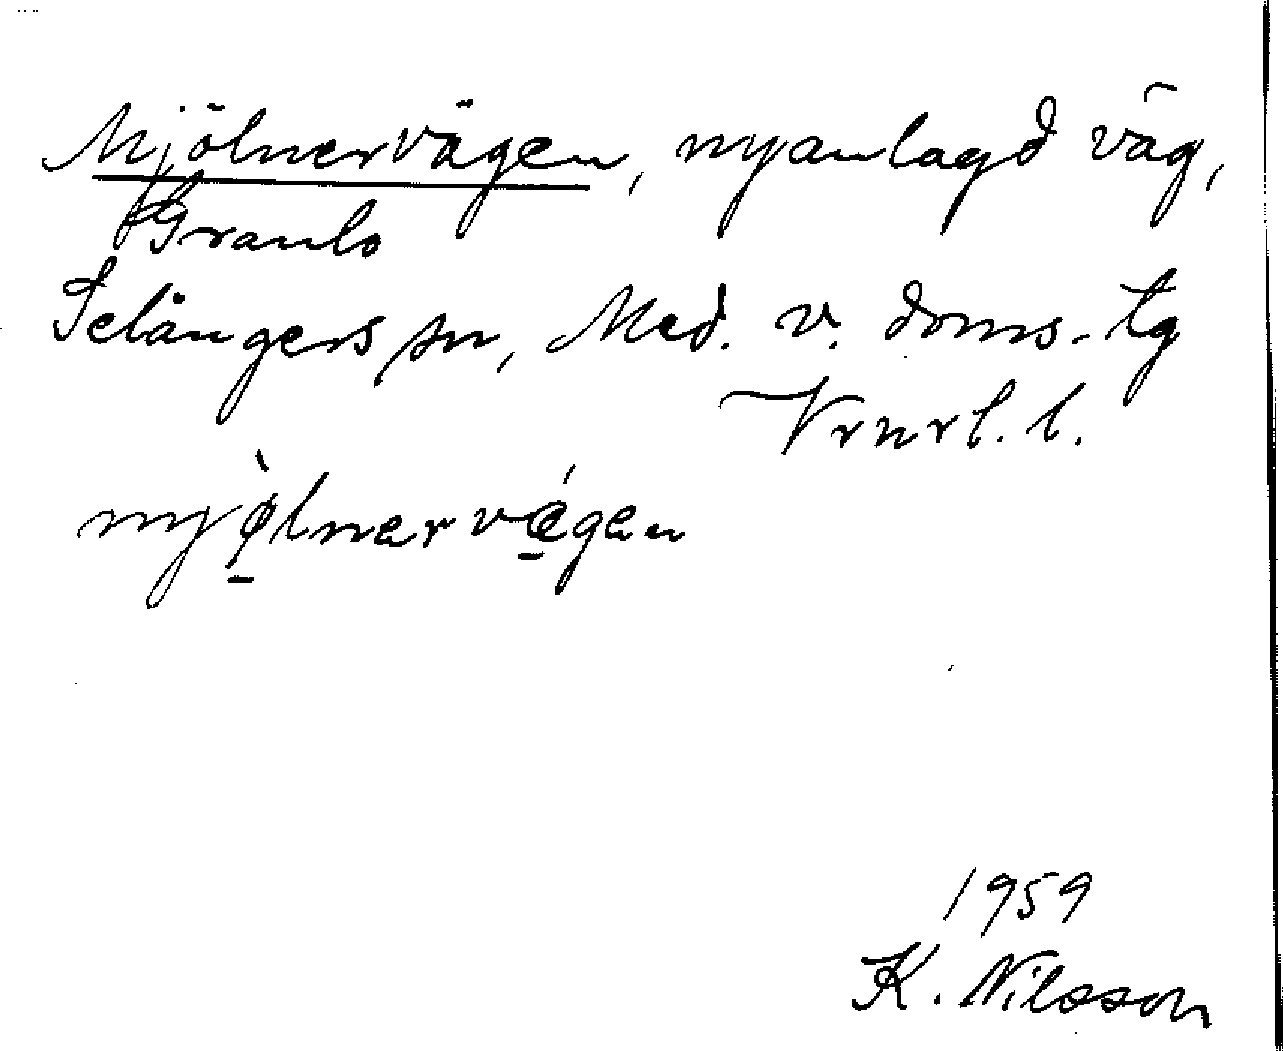 Mjölnervägen, nyanlagd väg,
Granlo
Selångers sn, Med. v. doms.-tg
Vrnrl. l.
mjø̱̀lnervǽ̱gen
1959
K. Nilsson